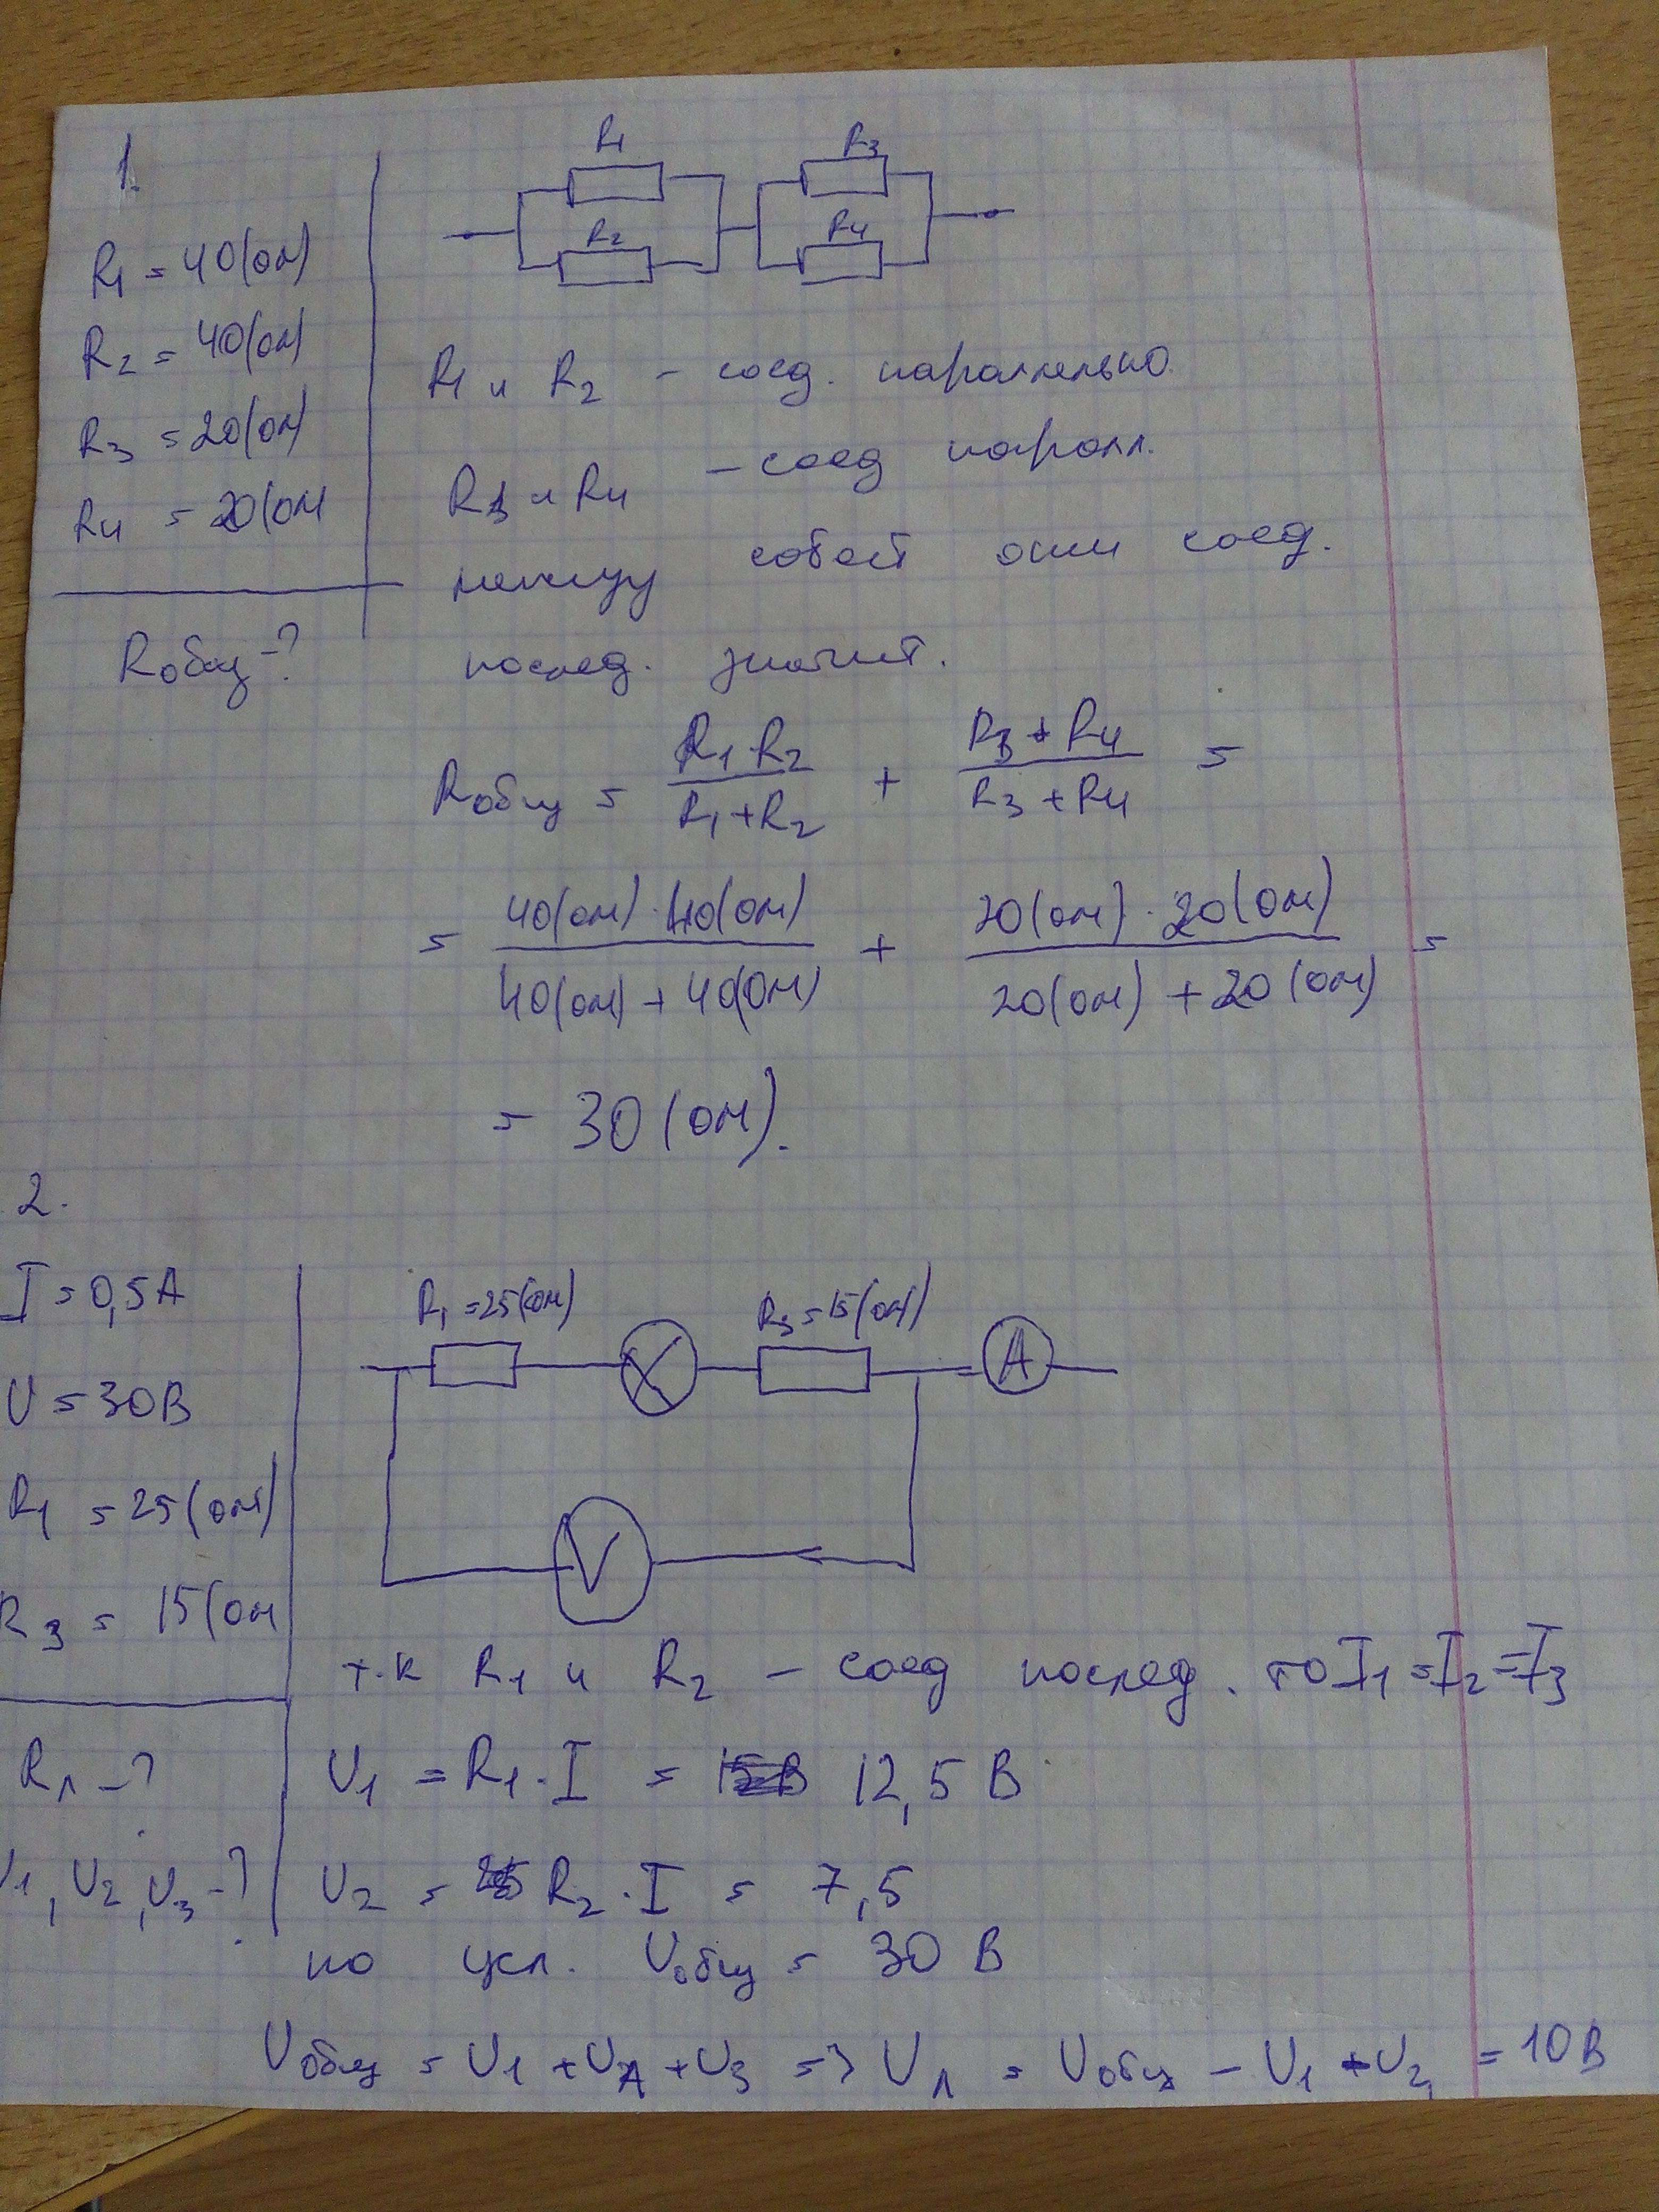 1.
R1 = 40(ом)
R2 = 40(ом)
R3 = 20(ом)
R4 = 20(ом
Rобщ-?
R1
R3
R2
R4
R1 и R2 - соед. параллельно
R3 и R4 - соед паралл.
между собой они соед.
послед. значит.
Rобщ = R1·R2 / R1+R2 + R3+R4 / R3+R4 =
= 40(ом)·40(ом) / 40(ом)+40(ом) + 20(ом)·20(ом) / 20(ом)+20(ом) =
= 30(ом).
2.
I = 0,5А
U = 30В
R1 = 25(ом)
R3 = 15(ом
Rл-?
U1, U2, U3-?
R1 = 25(ом)
R3 = 15(ом)
A
V
т.к R1 и R2 - соед послед. то I1 = I2 = I3
U1 = R1·I = 12,5 В
U2 = R2·I = 7,5
по усл. Uобщ = 30 В
Uобщ = U1 + Uл + U3 => Uл = Uобщ - U1 + U2 = 10В